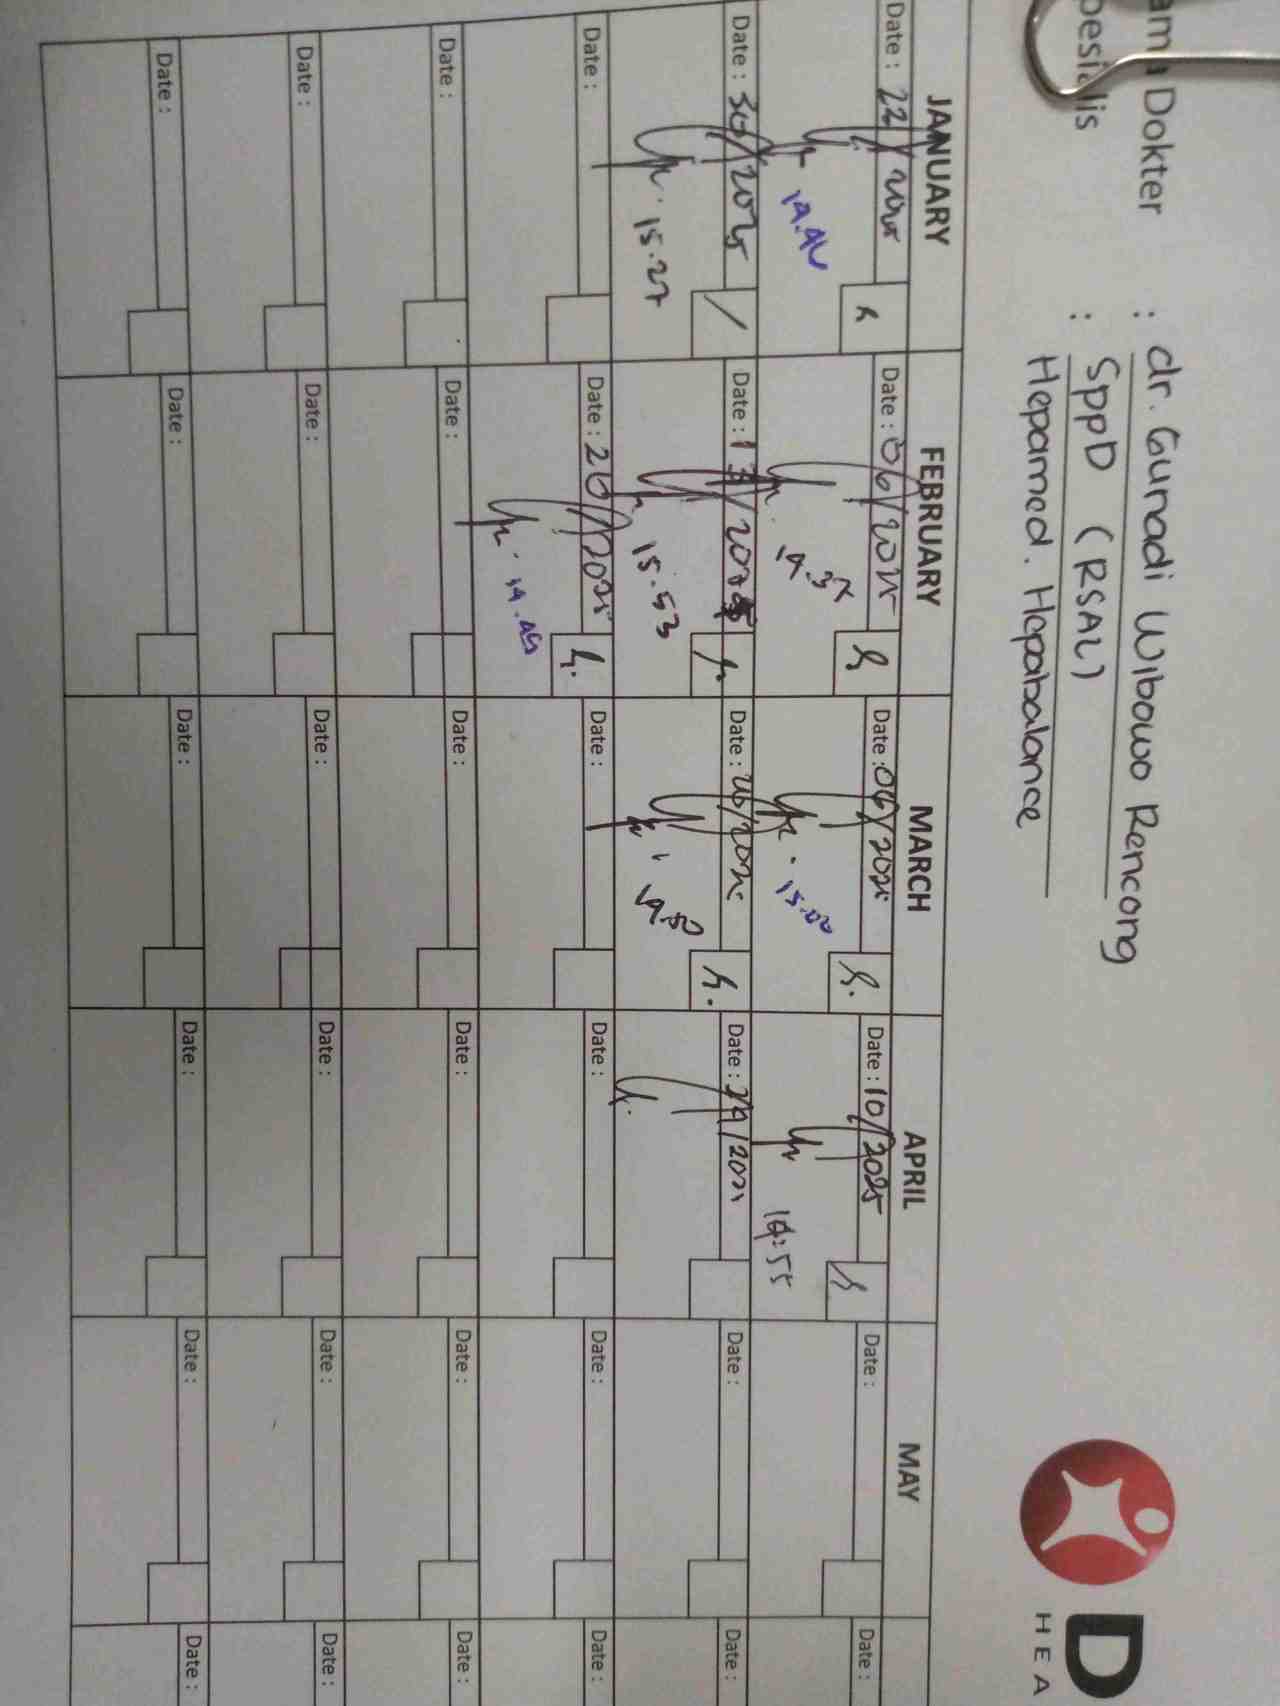 Dokter : dr. Gunadi Wibowo Rencong
: SppD (RSAL)
Hepamed. Hepabalance
D
HEA
JANUARY FEBRUARY MARCH APRIL MAY
Date : 22/ Date : 06/2025 Date : 06/2025 Date : 10/2025 Date : Date :
14.37 15.00 14:55
Date : 30/2025 Date : 13/2025 Date : 20/2025 Date : 24/2025 Date : Date :
15.27 15.53 14.50
Date : Date : 20/2025 Date : Date : Date : Date :
14.45
Date : Date : Date : Date : Date : Date :
Date : Date : Date : Date : Date : Date :
Date : Date : Date : Date : Date : Date :